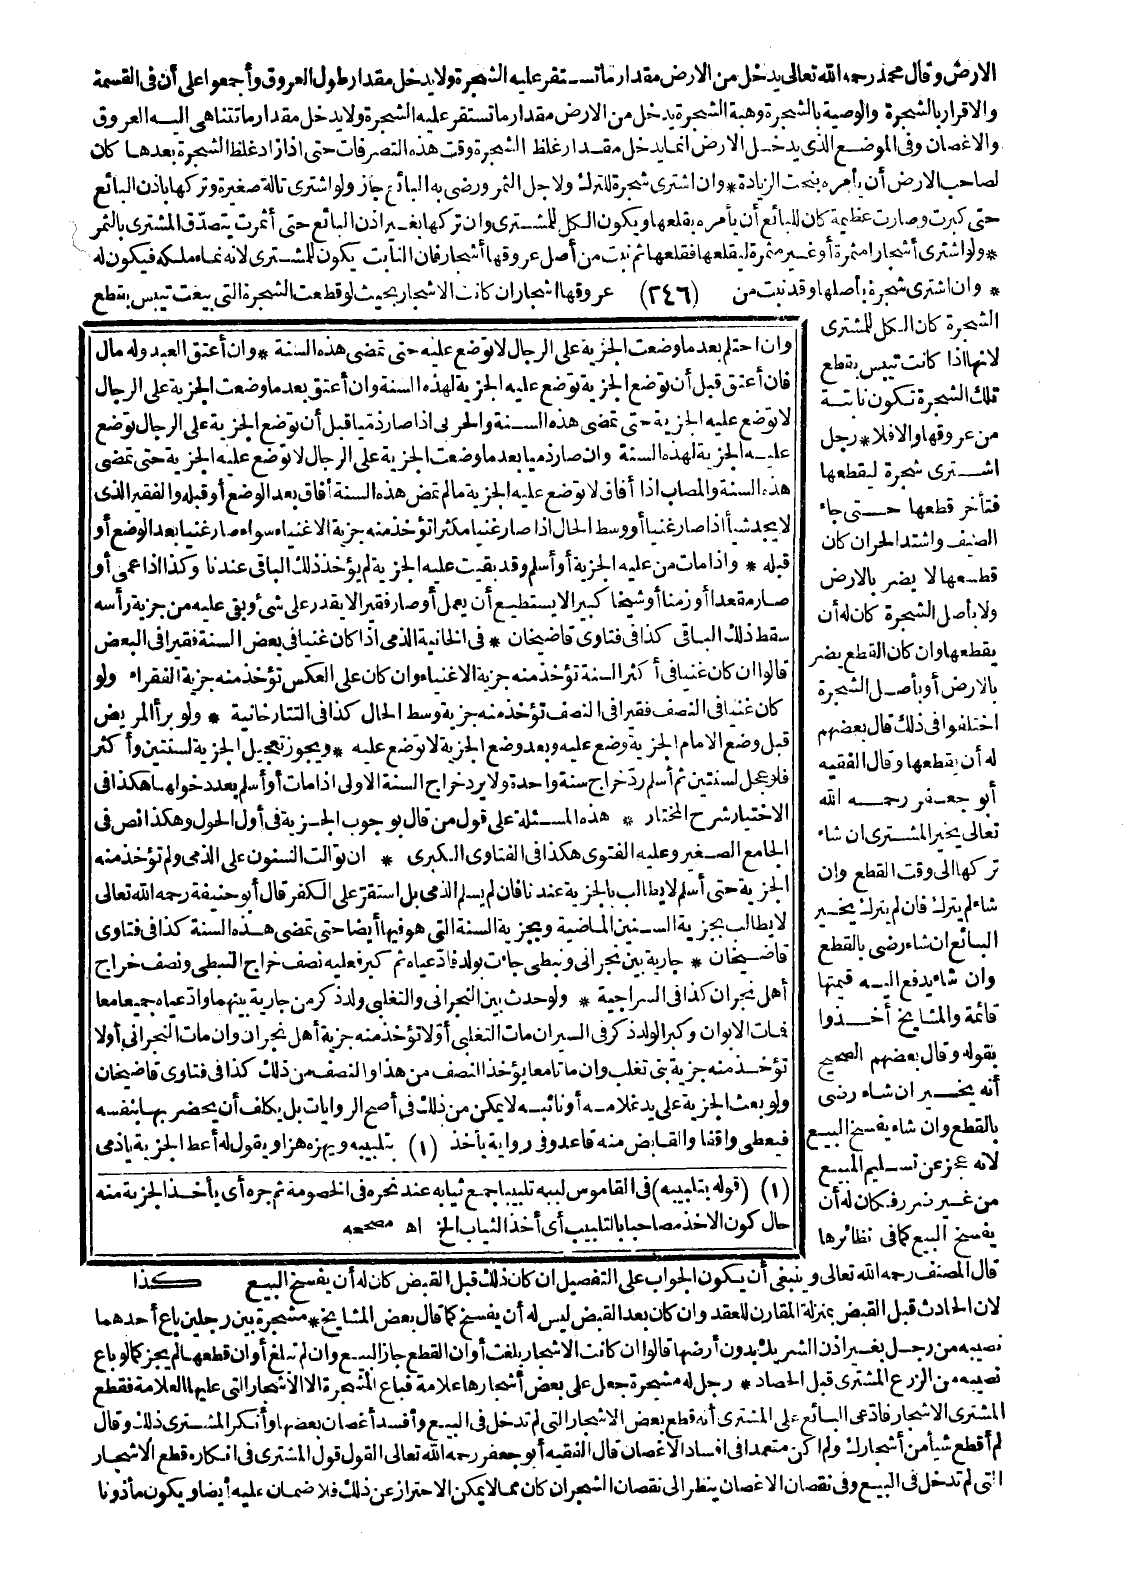 الارض وقال محمد رحمه الله تعالى يدخل من الارض مقدار ما تستقر عليه الشجرة ولا يدخل مقدار طول العروق وأجمعوا على أن فى القسمة
والاقرار بالشجرة والوصية بالشجرة وهبة الشجرة يدخل من الارض مقدار ما تستقر عليه الشجرة ولا يدخل مقدار ما تتناهى اليه العروق
والاغصان وفى الموضع الذى يدخل الارض انما يدخل مقدار غلظ الشجرة وقت هذه التصرفات حتى اذا ازداد غلظ الشجرة بعدها كان
لصاحب الارض أن يأمره بنحت الزيادة * وان اشترى شجرة للترك ولاجل الثمر ورضى به البائع جاز ولو اشترى تالة صغيرة وتركها باذن البائع
حتى كبرت وصارت عظيمة كان للبائع أن يأمره بقلعها ويكون الكل للمشترى وان تركها بغير اذن البائع حتى أثمرت يتصدق المشترى بالثمر
* ولو اشترى أشجارا مثمرة أو غير مثمرة ليقلعها فقلعها ثم نبت من أصل عروقها أشجار فان النابت يكون للمشترى لانه نماء ملكه فيكون له
* وان اشترى شجرة بأصلها وقد نبت من (٢٤٦) عروقها اشجار ان كانت الاشجار بحيث لو قطعت الشجرة التى بيعت تيبس بقطع
الشجرة كان الكل للمشترى
لانها اذا كانت تيبس بقطع
تلك الشجرة تكون نابتة
من عروقها والا فلا * رجل
اشترى شجرة ليقطعها
فتأخر قطعها حتى جاء
الصيف واشتد الحر ان كان
قطعها لا يضر بالارض
ولا بأصل الشجرة كان له أن
يقطعها وان كان القطع يضر
بالارض أو بأصل الشجرة
اختلفوا فى ذلك قال بعضهم
له أن يقطعها وقال الفقيه
أبو جعفر رحمه الله
تعالى يخير المشترى ان شاء
تركها الى وقت القطع وان
شاء لم يترك فان لم يترك يخير
البائع ان شاء رضى بالقطع
وان شاء يدفع اليه قيمتها
قائمة والمشايخ أخذوا
بقوله وقال بعضهم الصحيح
أنه يخير ان شاء رضى
بالقطع وان شاء يفسخ البيع
لانه عجز عن تسليم المبيع
من غير ضرر فكان له أن
يفسخ البيع كما فى نظائرها
وان احتلم بعد ما وضعت الجزية على الرجال لا توضع عليه حتى تمضى هذه السنة * وان أعتق العبد وله مال
فان أعتق قبل أن توضع الجزية توضع عليه الجزية لهذه السنة وان أعتق بعد ما وضعت الجزية على الرجال
لا توضع عليه الجزية حتى تمضى هذه السنة والحربى اذا صار ذميا قبل أن توضع الجزية على الرجال توضع
عليه الجزية لهذه السنة وان صار ذميا بعد ما وضعت الجزية على الرجال لا توضع عليه الجزية حتى تمضى
هذه السنة والمصاب اذا أفاق لا توضع عليه الجزية ما لم تمض هذه السنة أفاق بعد الوضع أو قبله والفقير الذى
لا يجد شيأ اذا صار غنيا أو وسط الحال اذا صار غنيا مكثرا تؤخذ منه جزية الاغنياء سواء صار غنيا بعد الوضع أو
قبله * واذا مات من عليه الجزية أو أسلم وقد بقيت عليه الجزية لم يؤخذ ذلك الباقى عندنا وكذا اذا عمى أو
صار مقعدا أو زمنا أو شيخا كبيرا لا يستطيع أن يعمل أو صار فقيرا لا يقدر على شئ وبقى عليه من جزية رأسه
سقط ذلك الباقى كذا فى فتاوى قاضيخان * فى الخانية الذمى اذا كان غنيا فى بعض السنة فقيرا فى البعض
قالوا ان كان غنيا فى أكثر السنة تؤخذ منه جزية الاغنياء وان كان على العكس تؤخذ منه جزية الفقراء ولو
كان غنيا فى النصف فقيرا فى النصف تؤخذ منه جزية وسط الحال كذا فى التتارخانية * ولو برأ المريض
قبل وضع الامام الجزية وضع عليه وبعد وضع الجزية لا توضع عليه * ويجوز تعجيل الجزية لسنتين وأكثر
فلو عجل لسنتين ثم أسلم رد خراج سنة واحدة ولا يرد خراج السنة الاولى اذا مات أو أسلم بعد دخولها هكذا فى
الاختيار شرح المختار * هذه المسئلة على قول من قال بوجوب الجزية فى أول الحول وهكذا نص فى
الجامع الصغير وعليه الفتوى هكذا فى الفتاوى الكبرى * ان توالت السنون على الذمى ولم تؤخذ منه
الجزية حتى أسلم لا يطالب بالجزية عندنا فان لم يسلم الذمى بل استقر على الكفر قال أبو حنيفة رحمه الله تعالى
لا يطالب بجزية السنين الماضية وبجزية السنة التى هو فيها أيضا حتى تمضى هذه السنة كذا فى فتاوى
قاضيخان * جارية بين نجرانى ونبطى جاءت بولد فادعياه ثم كبر فعليه نصف خراج النبطى ونصف خراج
أهل نجران كذا فى السراجية * ولو حدث بين النجرانى والتغلبى ولد ذكر من جارية بينهما وادعياه جميعا معا
فمات الابوان وكبر الولد ذكر فى السير ان مات التغلبى أولا تؤخذ منه جزية أهل نجران وان مات النجرانى أولا
تؤخذ منه جزية بنى تغلب وان ماتا معا يؤخذ النصف من هذا والنصف من ذلك كذا فى فتاوى قاضيخان
ولو بعث الجزية على يد غلامه أو نائبه لا يمكن من ذلك فى أصح الروايات بل يكلف أن يحضر بها بنفسه
فيعطى واقفا والقابض منه قاعد وفى رواية يأخذ (١) بتلبيبه ويهزه هزا ويقول له أعط الجزية يا ذمى
(١) (قوله بتلبيبه) فى القاموس لببه تلبيبا جمع ثيابه عند نحره فى الخصومة ثم جره أى يأخذ الجزية منه
حال كون الآخذ مصاحبا بالتلبيب أى أخذ الثياب الخ اه مصححه
قال المصنف رحمه الله تعالى وينبغى أن يكون الجواب على التفصيل ان كان ذلك قبل القبض كان له أن يفسخ البيع كذا
لان الحادث قبل القبض بمنزلة المقارن للعقد وان كان بعد القبض ليس له أن يفسخ كما قال بعض المشايخ * مشجرة بين رجلين باع أحدهما
نصيبه من رجل بغير اذن الشريك بدون أرضها قالوا ان كانت الاشجار بلغت أوان القطع جاز البيع وان لم تبلغ أوان قطعها لم يجز كما لو باع
نصيبه من الزرع المشترى قبل الحصاد * رجل له مشجرة جعل على بعض أشجارها علامة فباع المشجرة الا الاشجار التى عليها العلامة فقطع
المشترى الاشجار فادعى البائع على المشترى أنه قطع بعض الاشجار التى لم تدخل فى البيع وأفسد أغصان بعضها وأنكر المشترى ذلك وقال
لم أقطع شيأ من أشجارك ولم أكن متعمدا فى افساد الاغصان قال الفقيه أبو جعفر رحمه الله تعالى القول قول المشترى فى انكاره قطع الاشجار
التى لم تدخل فى البيع وفى نقصان الاغصان ينظر الى نقصان الشجر ان كان مما لا يمكن الاحتراز عن ذلك فلا ضمان عليه أيضا ويكون مأذونا